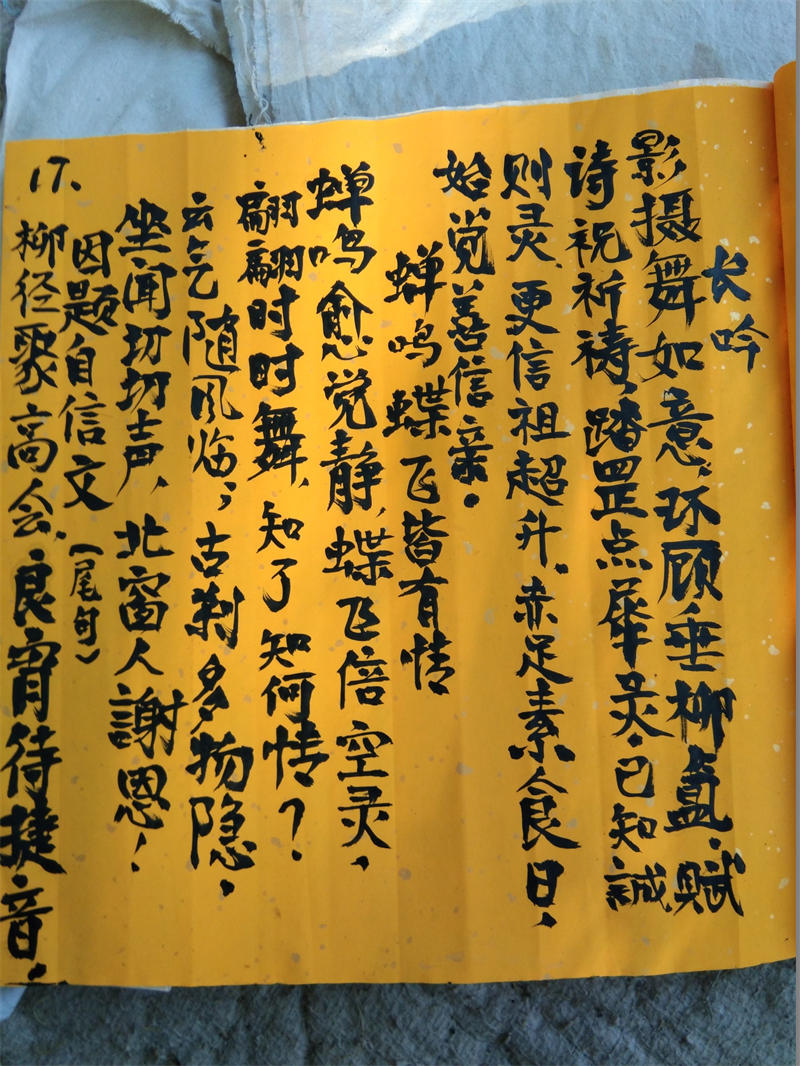 长吟
影摄舞如意，环顾垂柳盘，赋
诗祝祈祷，踏罡点犀灵。已知誠
则灵，更信祖超升。赤足素食日，
始觉善信亲。
蝉鸣蝶飞皆有情
蝉鸣愈觉静，蝶飞倍空灵，
翩翩时时舞，知了知何情？
云气随风临，古刹多物隐，
坐闻切切声，北窗人謝恩！
因题自信文（尾句）
17、柳径聚高会，良宵待捷音，